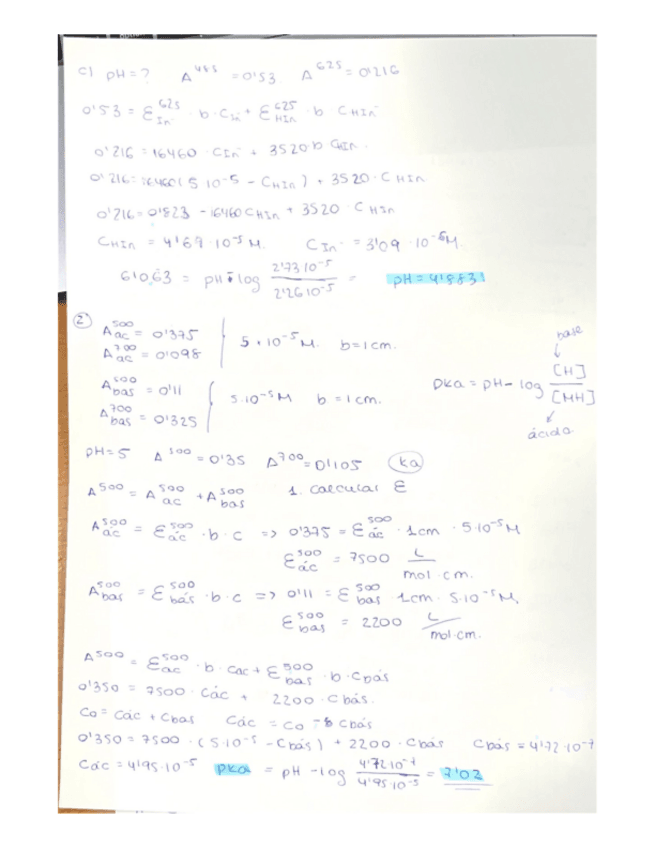 C) pH = ? A⁴⁸⁵ = 0'53. A⁶²⁵ = 0'216
0'53 = ε⁶²⁵ In⁻ · b · C In⁻ + ε⁶²⁵ HIn · b C HIn
0'216 = 16460 · C In⁻ + 3520 · b C HIn.
0'216 = 16460 (5 10⁻⁵ - C HIn) + 3520 · C HIn
0'216 = 0'823 - 16460 C HIn + 3520 · C HIn
C HIn = 4'69 · 10⁻⁵ M. C In⁻ = 3'09 · 10⁻⁶ M.
6'063 = pH - log 2'73 10⁻⁵ / 2'26 10⁻⁵ = pH = 4'8831
② A⁵⁰⁰ ac = 0'375
A⁷⁰⁰ ac = 0'098
5 · 10⁻⁵ M. b = 1 cm.
A⁵⁰⁰ bas = 0'11
A⁷⁰⁰ bas = 0'325
5 · 10⁻⁵ M b = 1 cm.
base
pKa = pH - log [H] / [MH]
ácido
pH = 5 A⁵⁰⁰ = 0'35 A⁷⁰⁰ = 0'105 Ka
A⁵⁰⁰ = A⁵⁰⁰ ac + A⁵⁰⁰ bas 1. calcular ε
A⁵⁰⁰ ác = ε⁵⁰⁰ ác · b · c => 0'375 = ε⁵⁰⁰ ác · 1cm · 5·10⁻⁵ M
ε⁵⁰⁰ ác = 7500 L / mol · cm.
A⁵⁰⁰ bas = ε⁵⁰⁰ bás · b · c => 0'11 = ε⁵⁰⁰ bas 1cm · 5·10⁻⁵ M.
ε⁵⁰⁰ bas = 2200 L / mol·cm.
A⁵⁰⁰ = ε⁵⁰⁰ ac · b · Cac + ε⁵⁰⁰ bas · b · Cbás
0'350 = 7500 · Các + 2200 · Cbás.
Co = Các + Cbas Các = Co - Cbás
0'350 = 7500 · (5·10⁻⁵ - Cbás) + 2200 · Cbás Cbás = 4'72·10⁻⁷
Các = 4'95·10⁻⁵ pKa = pH - log 4'72·10⁻⁷ / 4'95·10⁻⁵ = 7'02